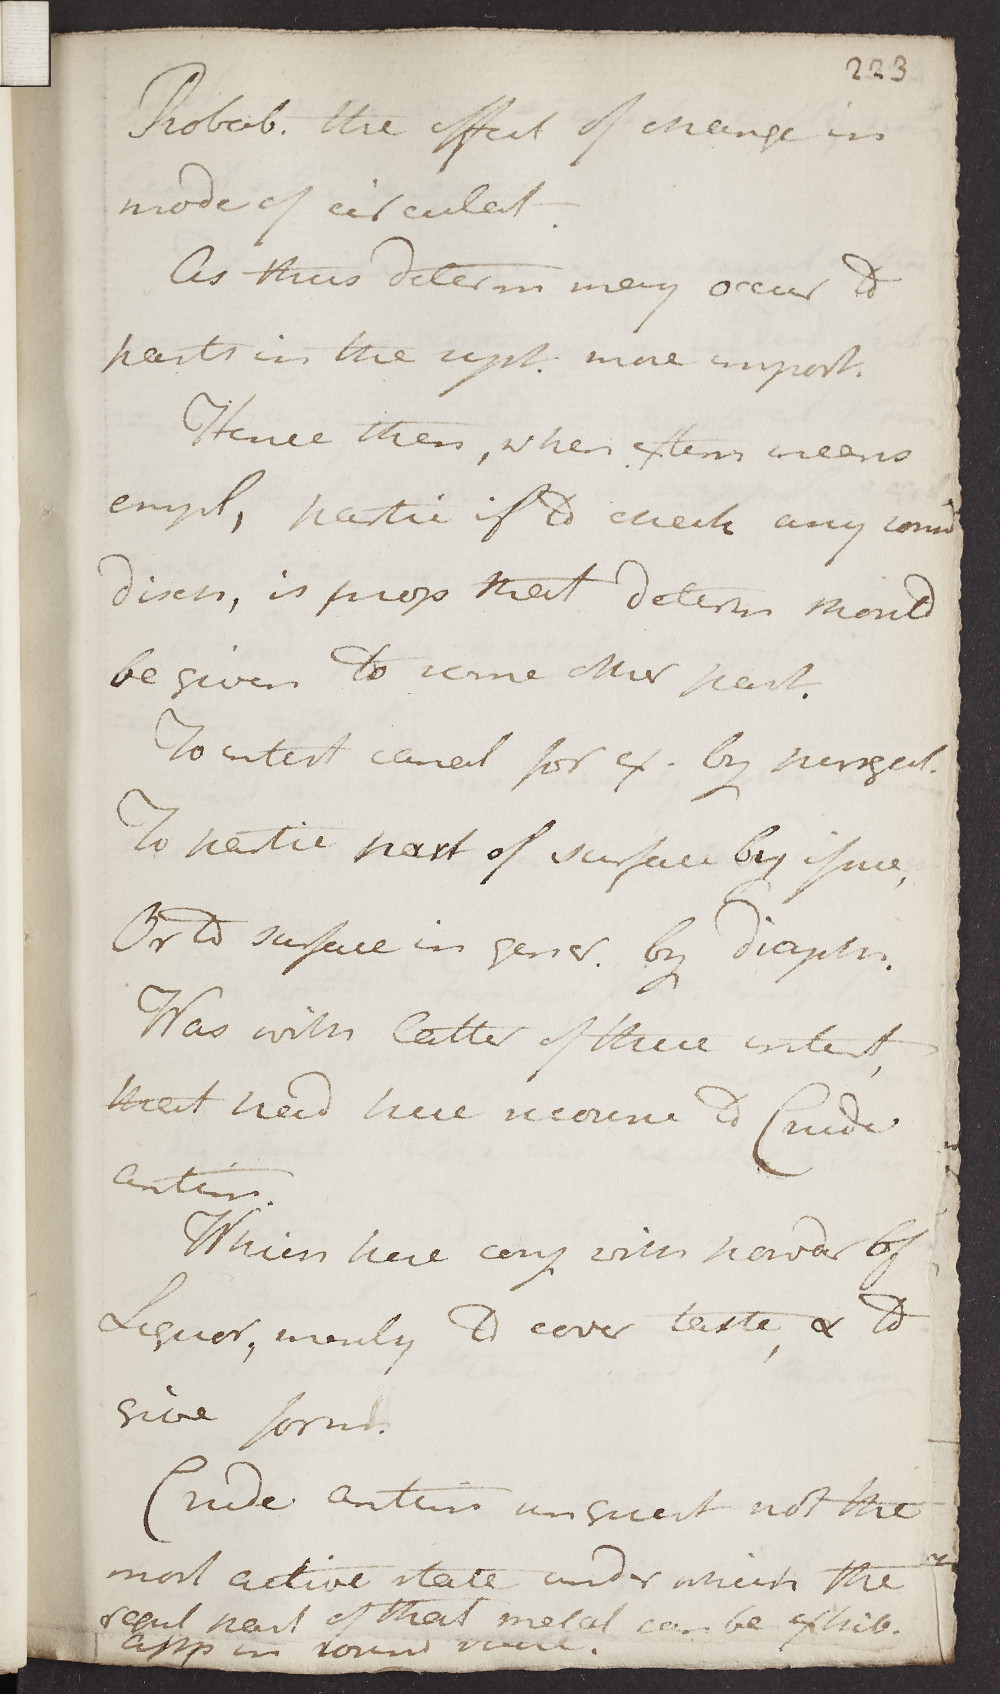 223
Probab. the effect of change in
mode of circulat.
As thus determ may occur to
parts in the syst. more import.
Hence then, when extern means
empl, partic if to check any
disch, is prop that determ should
be given to some other part.
To intest canal for ex. by purgat.
To partic part of surface by issue,
Or to surface in gener. by diaph.
Was with latter of these intent,
that had here recourse to Crude
antim.
Which here conj with powder of
Liquor, merely to cover taste, & to
give form.
Crude antim unquest not the
most active state under which the
regul part of that metal can be exhib.